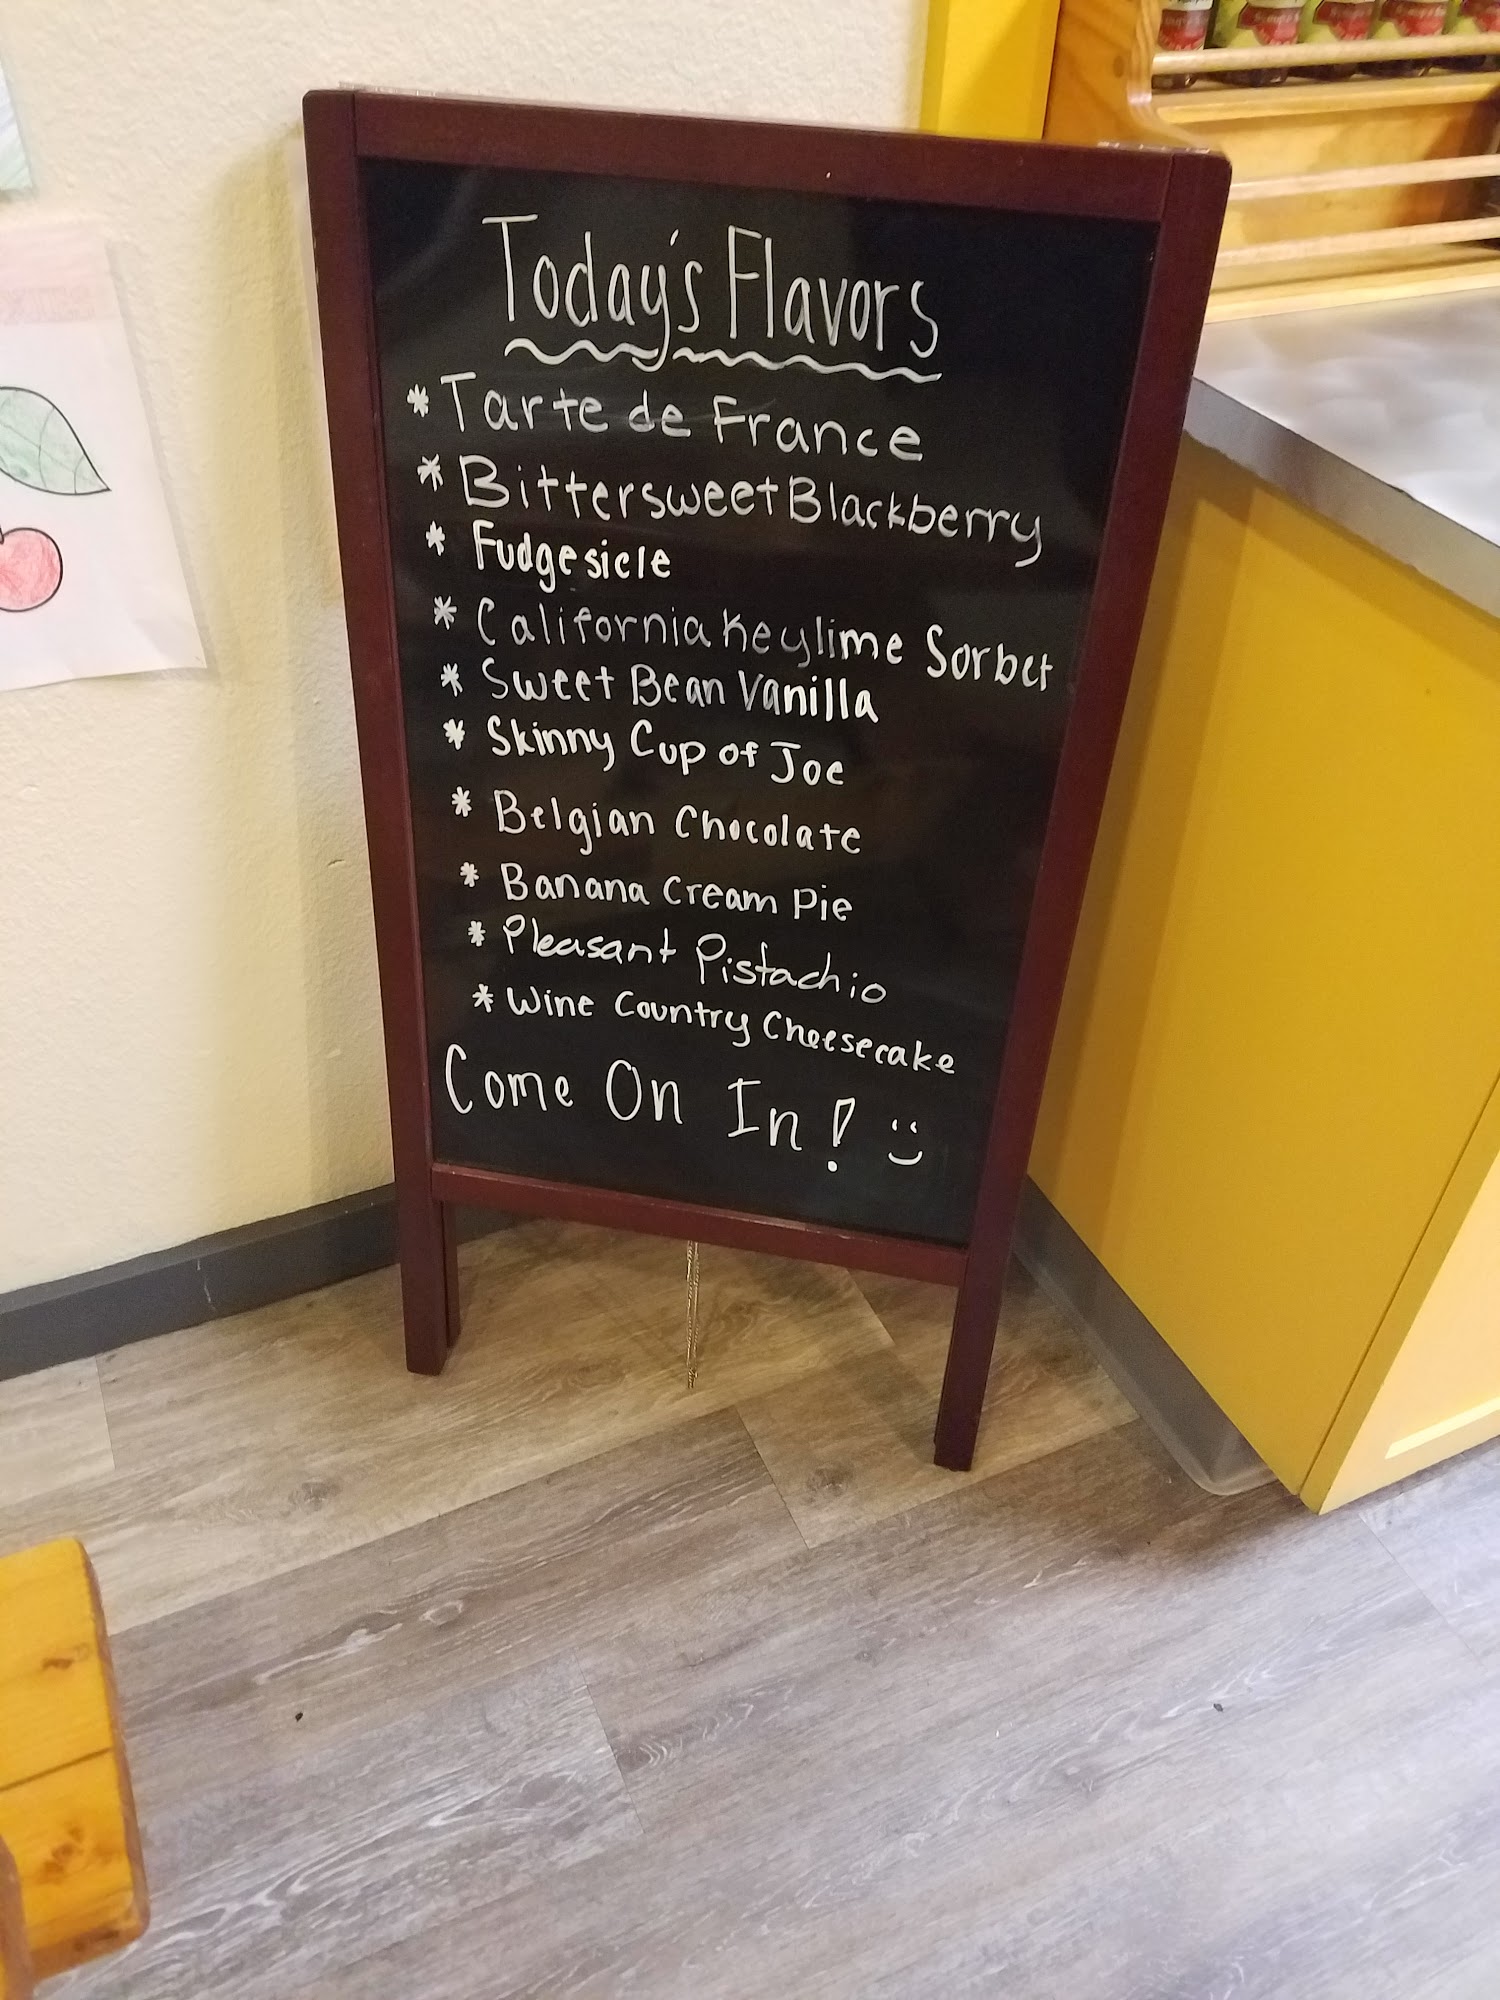 Today's Flavors
* Tarte de France
* Bittersweet Blackberry
* Fudgesicle
* California Keylime Sorbet
* Sweet Bean Vanilla
* Skinny Cup of Joe
* Belgian Chocolate
* Banana Cream Pie
* Pleasant Pistachio
* Wine Country Cheesecake
Come On In! :)